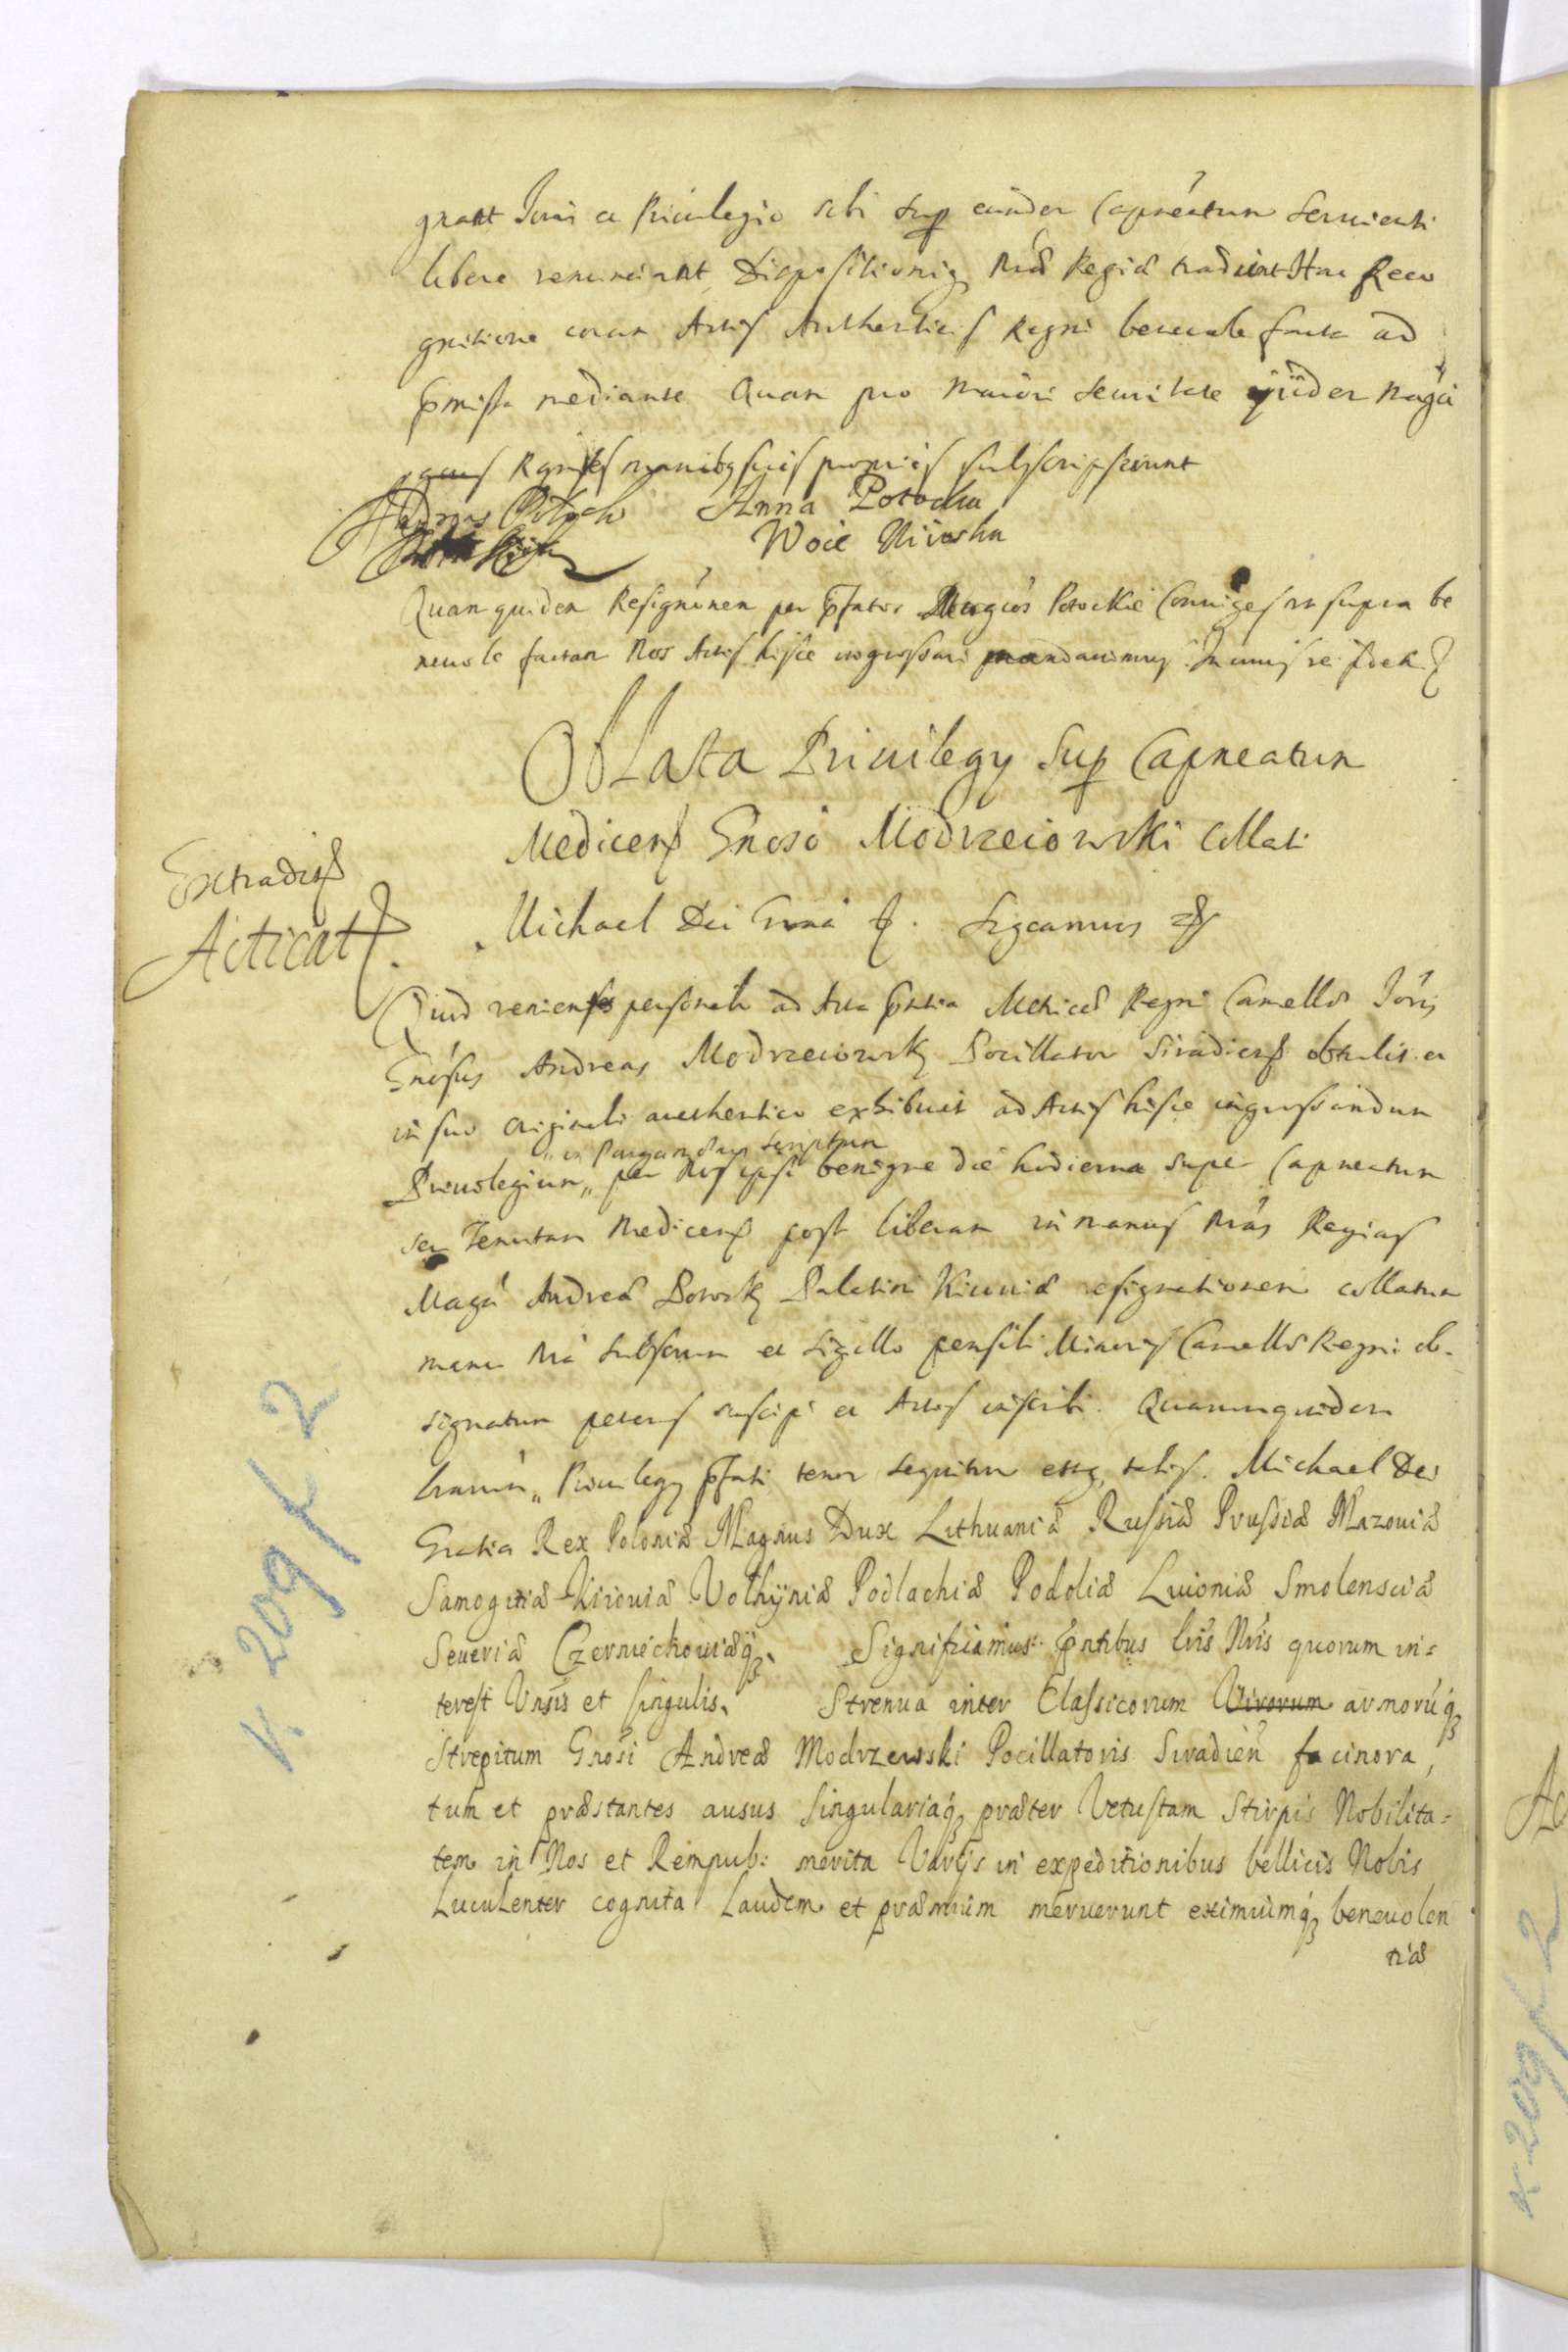 grant Juri et Priuilegio sibi Sup eundem Capneatum Seruienti
libere renunciant, Dispositioniq Nræ Regiæ tradunt Hac Reco
gnitione coram Actis Authenticis Regni beneuole facta ad
pmissa mediante Quam pro maiori Securitate ijdem Magci
Rgntes manibq suis proprijs subscripserunt
Potocki Anna Potocka
Woie Kiioska
Quam quidem Resignonem per pfatos Magcos Potockie Coniuges ut supra be
neuole factam Nos Actis hisce ingrossari mandauimus. In cuius rei fidem
Oblata Priuilegy Sup Capneatum
Medicens Gnoso Modrzeiowski Collati
Extradit
Acticat
Michael Dei Grna Sigcamus
Quod veniens personalr ad Acta pntia Metrices Regni Cancellæ Joris
Gnosus Andreas Modrzeiowsky Pocillator Siradiens obtulit et
in suo originali authentico exhibuit ad Actis hisce ingrossandum
„ in Pargameno Scriptum
Priuilegium „ per Nos ipsi benigne die hodierna super Capneatum
seu Tenutam Medicens post liberam in manus Nras Regias
Magci Andreæ Potocky Palatini Kiouiæ resignationem collatum
manu Nra Subscrum et Sigillo pensili Minoris Cancellæ Regni ob-
signatum petens suscipi et Actis inscribi. Quarumquidem
lrarum „ Priuilegy pfati tenor sequitur estq, talis. Michael Dei
Gratia Rex Poloniæ Magnus Dux Lithuaniæ Russiæ Prussiæ Mazouiæ
Samogitiæ Kiiouiæ Volhyniæ Podlachiæ Podoliæ Liuoniæ Smolensciæ
Seueriæ Czerniechouiæq. Significamus pntibus lris Nris quorum in=
terest Vnsis et singulis. Strenua inter Classicorum Virorum armorúq
Strepitum Gnosi Andreæ Modrzewski Pocillatoris Siradien facinora,
tum et præstantes ausus singulariaq præter Vetustam Stirpis Nobilita=
tem in Nos et Rempub: merita Varijs in expeditionibus bellicis Nobis
Luculenter cognita Laudem et præmium meruerunt eximiumq beneuolen
tiæ
K. 209 f 2
K 209 f 2